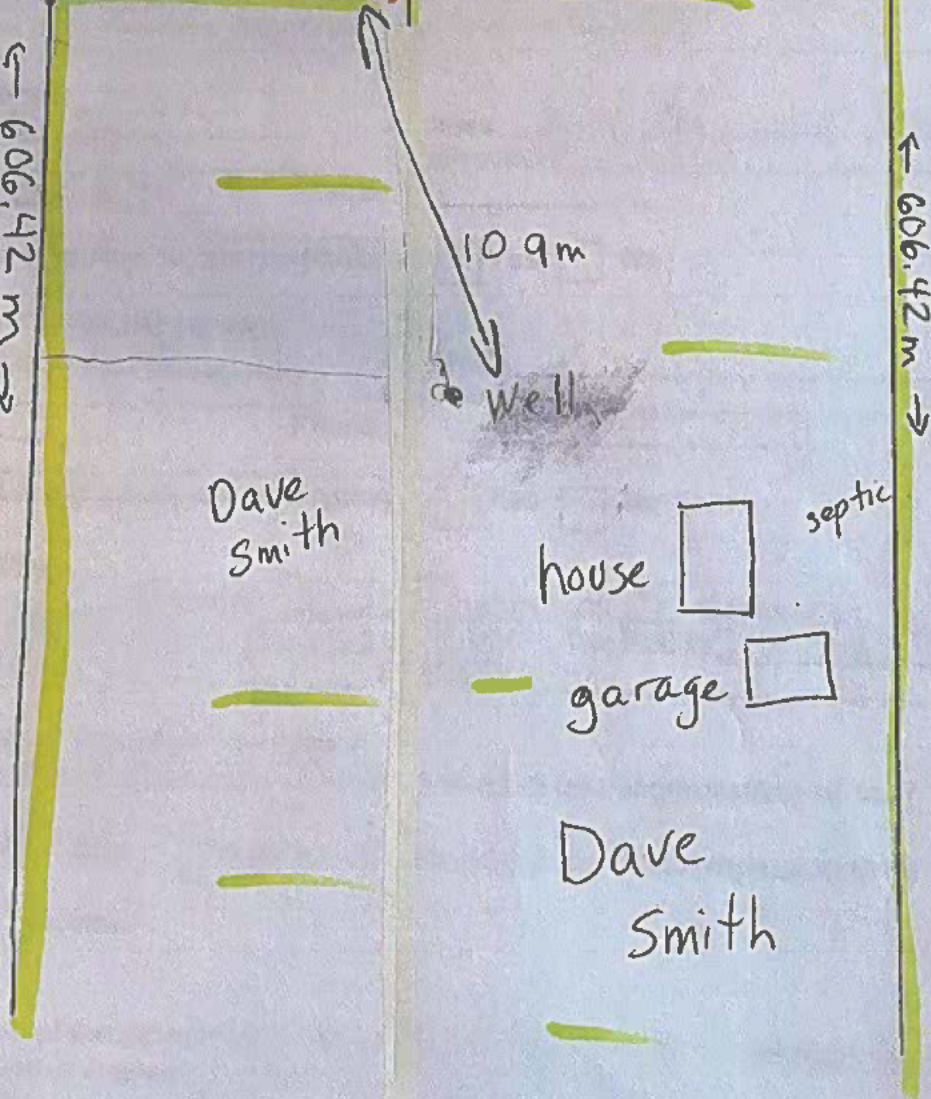 ← 606.42 m →
← 606.42 m →
109m
Well
Dave
Smith
septic
house
garage
Dave
Smith